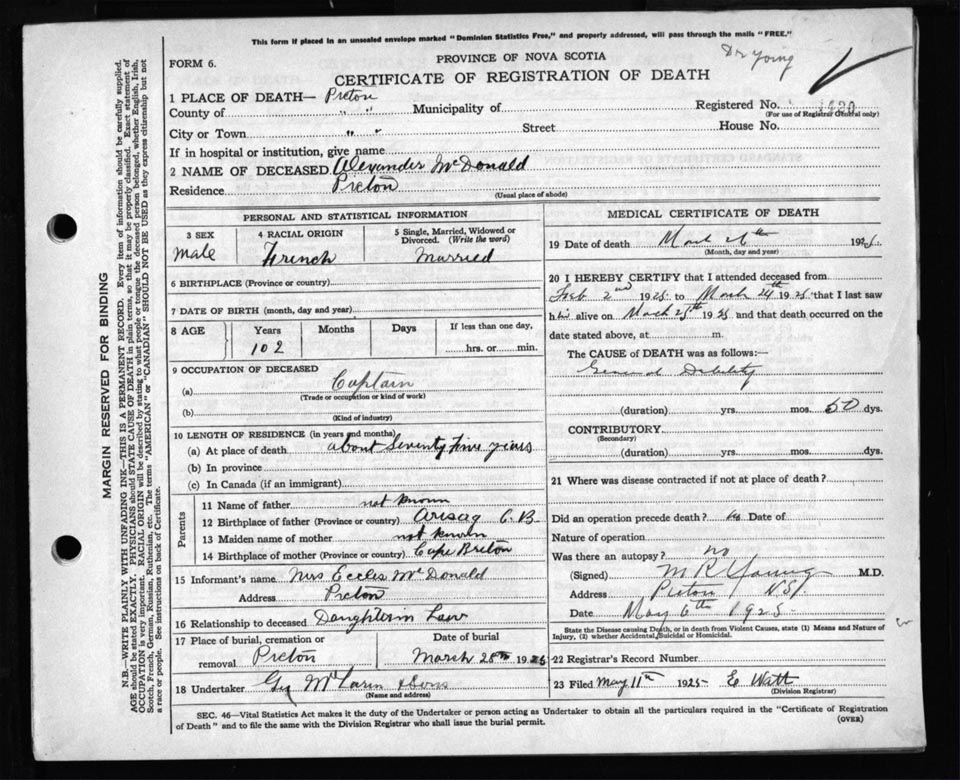 This form if placed in an unsealed envelope marked "Dominion Statistics Free," and properly addressed, will pass through the mails "FREE."
Dr Young
FORM 6.
PROVINCE OF NOVA SCOTIA
CERTIFICATE OF REGISTRATION OF DEATH
1 PLACE OF DEATH— Picton
Registered No.
(For use of Registrar General only)
County of " " Municipality of
City or Town " " Street House No.
If in hospital or institution, give name
2 NAME OF DECEASED Alexander McDonald
Residence Picton
(Usual place of abode)
PERSONAL AND STATISTICAL INFORMATION
3 SEX
male
4 RACIAL ORIGIN
French
5 Single, Married, Widowed or Divorced. (Write the word)
Married
6 BIRTHPLACE (Province or country)
7 DATE OF BIRTH (month, day and year)
8 AGE Years Months Days If less than one day,
102 hrs. or min.
9 OCCUPATION OF DECEASED
(a) Captain
(Trade or occupation or kind of work)
(b)
(Kind of industry)
10 LENGTH OF RESIDENCE (in years and months)
(a) At place of death about Seventy five years
(b) In province
(c) In Canada (if an immigrant)
Parents
11 Name of father not known
12 Birthplace of father (Province or country) Arisag C.B.
13 Maiden name of mother not known
14 Birthplace of mother (Province or country) Cape Breton
15 Informant's name Mrs Eccles McDonald
Address Picton
16 Relationship to deceased Daughter in Law
17 Place of burial, cremation or removal Picton
Date of burial
March 28th 1925
18 Undertaker McLaren & Sons
(Name and address)
MEDICAL CERTIFICATE OF DEATH
19 Date of death March 26th 192
(Month, day and year)
20 I HEREBY CERTIFY that I attended deceased from
Feb 2nd 1925 to March 24th 1925 that I last saw
h im alive on March 25th 1925 and that death occurred on the
date stated above, at m.
The CAUSE of DEATH was as follows:—
General Debility
(duration) yrs. mos. 50 dys.
CONTRIBUTORY
(Secondary)
(duration) yrs. mos. dys.
21 Where was disease contracted if not at place of death?
Did an operation precede death? no Date of
Nature of operation
Was there an autopsy? no
(Signed) M R Young M.D.
Address Picton N.S.
Date May 6th 1925
State the Disease causing Death, or in death from Violent Causes, state (1) Means and Nature of Injury, (2) whether Accidental, Suicidal or Homicidal.
22 Registrar's Record Number
23 Filed May 11th 1925 E Watt
(Division Registrar)
SEC. 46—Vital Statistics Act makes it the duty of the Undertaker or person acting as Undertaker to obtain all the particulars required in the "Certificate of Registration
of Death" and to file the same with the Division Registrar who shall issue the burial permit.
(OVER)
MARGIN RESERVED FOR BINDING
N.B.—WRITE PLAINLY WITH UNFADING INK—THIS IS A PERMANENT RECORD. Every item of information should be carefully supplied.
AGE should be stated EXACTLY. PHYSICIANS should STATE CAUSE OF DEATH in plain terms, so that it may be properly classified. Exact statement of
OCCUPATION is very important. RACIAL ORIGIN will be described by stating to what people or tongue the deceased person belonged, whether English, Irish,
Scotch, French, German, Russian, Ruthenian, etc. The terms "AMERICAN" or "CANADIAN" SHOULD NOT BE USED as they express citizenship but not
a race or people. See instructions on back of Certificate.